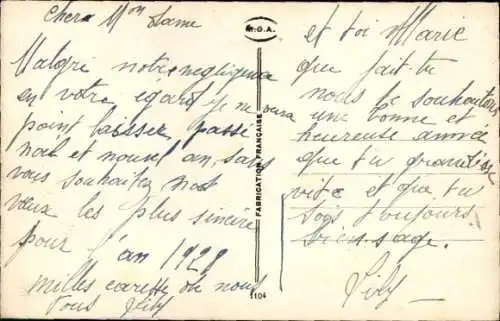 Chers Mon Dame
Malgré notre négligence
en votre égard je ne veux
point laisser passé
noël et nouvel an sans
vous souhaiter nos
vœux les plus sincère
pour l'an 1929
milles caresse de nous
tous
M.O.A.
FABRICATION FRANÇAISE
1104
et toi Marie
que fait-tu
nous te souhaitons
une bonne et
heureuse année
que tu grandisse
vite et que tu
sois toujours
bien sage.